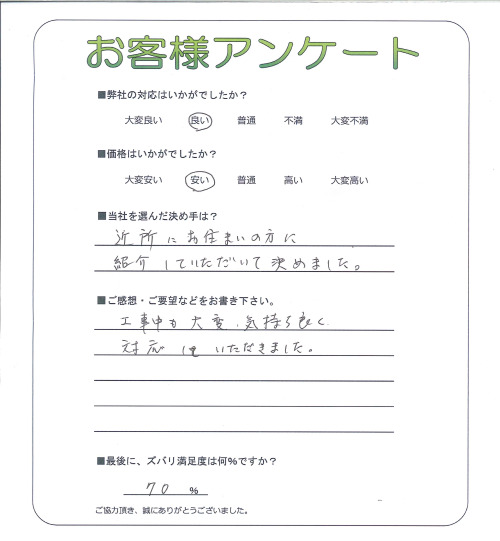 お客様アンケート
■弊社の対応はいかがでしたか？
大変良い 良い 普通 不満 大変不満
■価格はいかがでしたか？
大変安い 安い 普通 高い 大変高い
■当社を選んだ決め手は？
近所にお住まいの方に
紹介していただいて決めました。
■ご感想・ご要望などをお書き下さい。
工事中も大変、気持ち良く
対応していただきました。
■最後に、ズバリ満足度は何%ですか？
70 %
ご協力頂き、誠にありがとうございました。